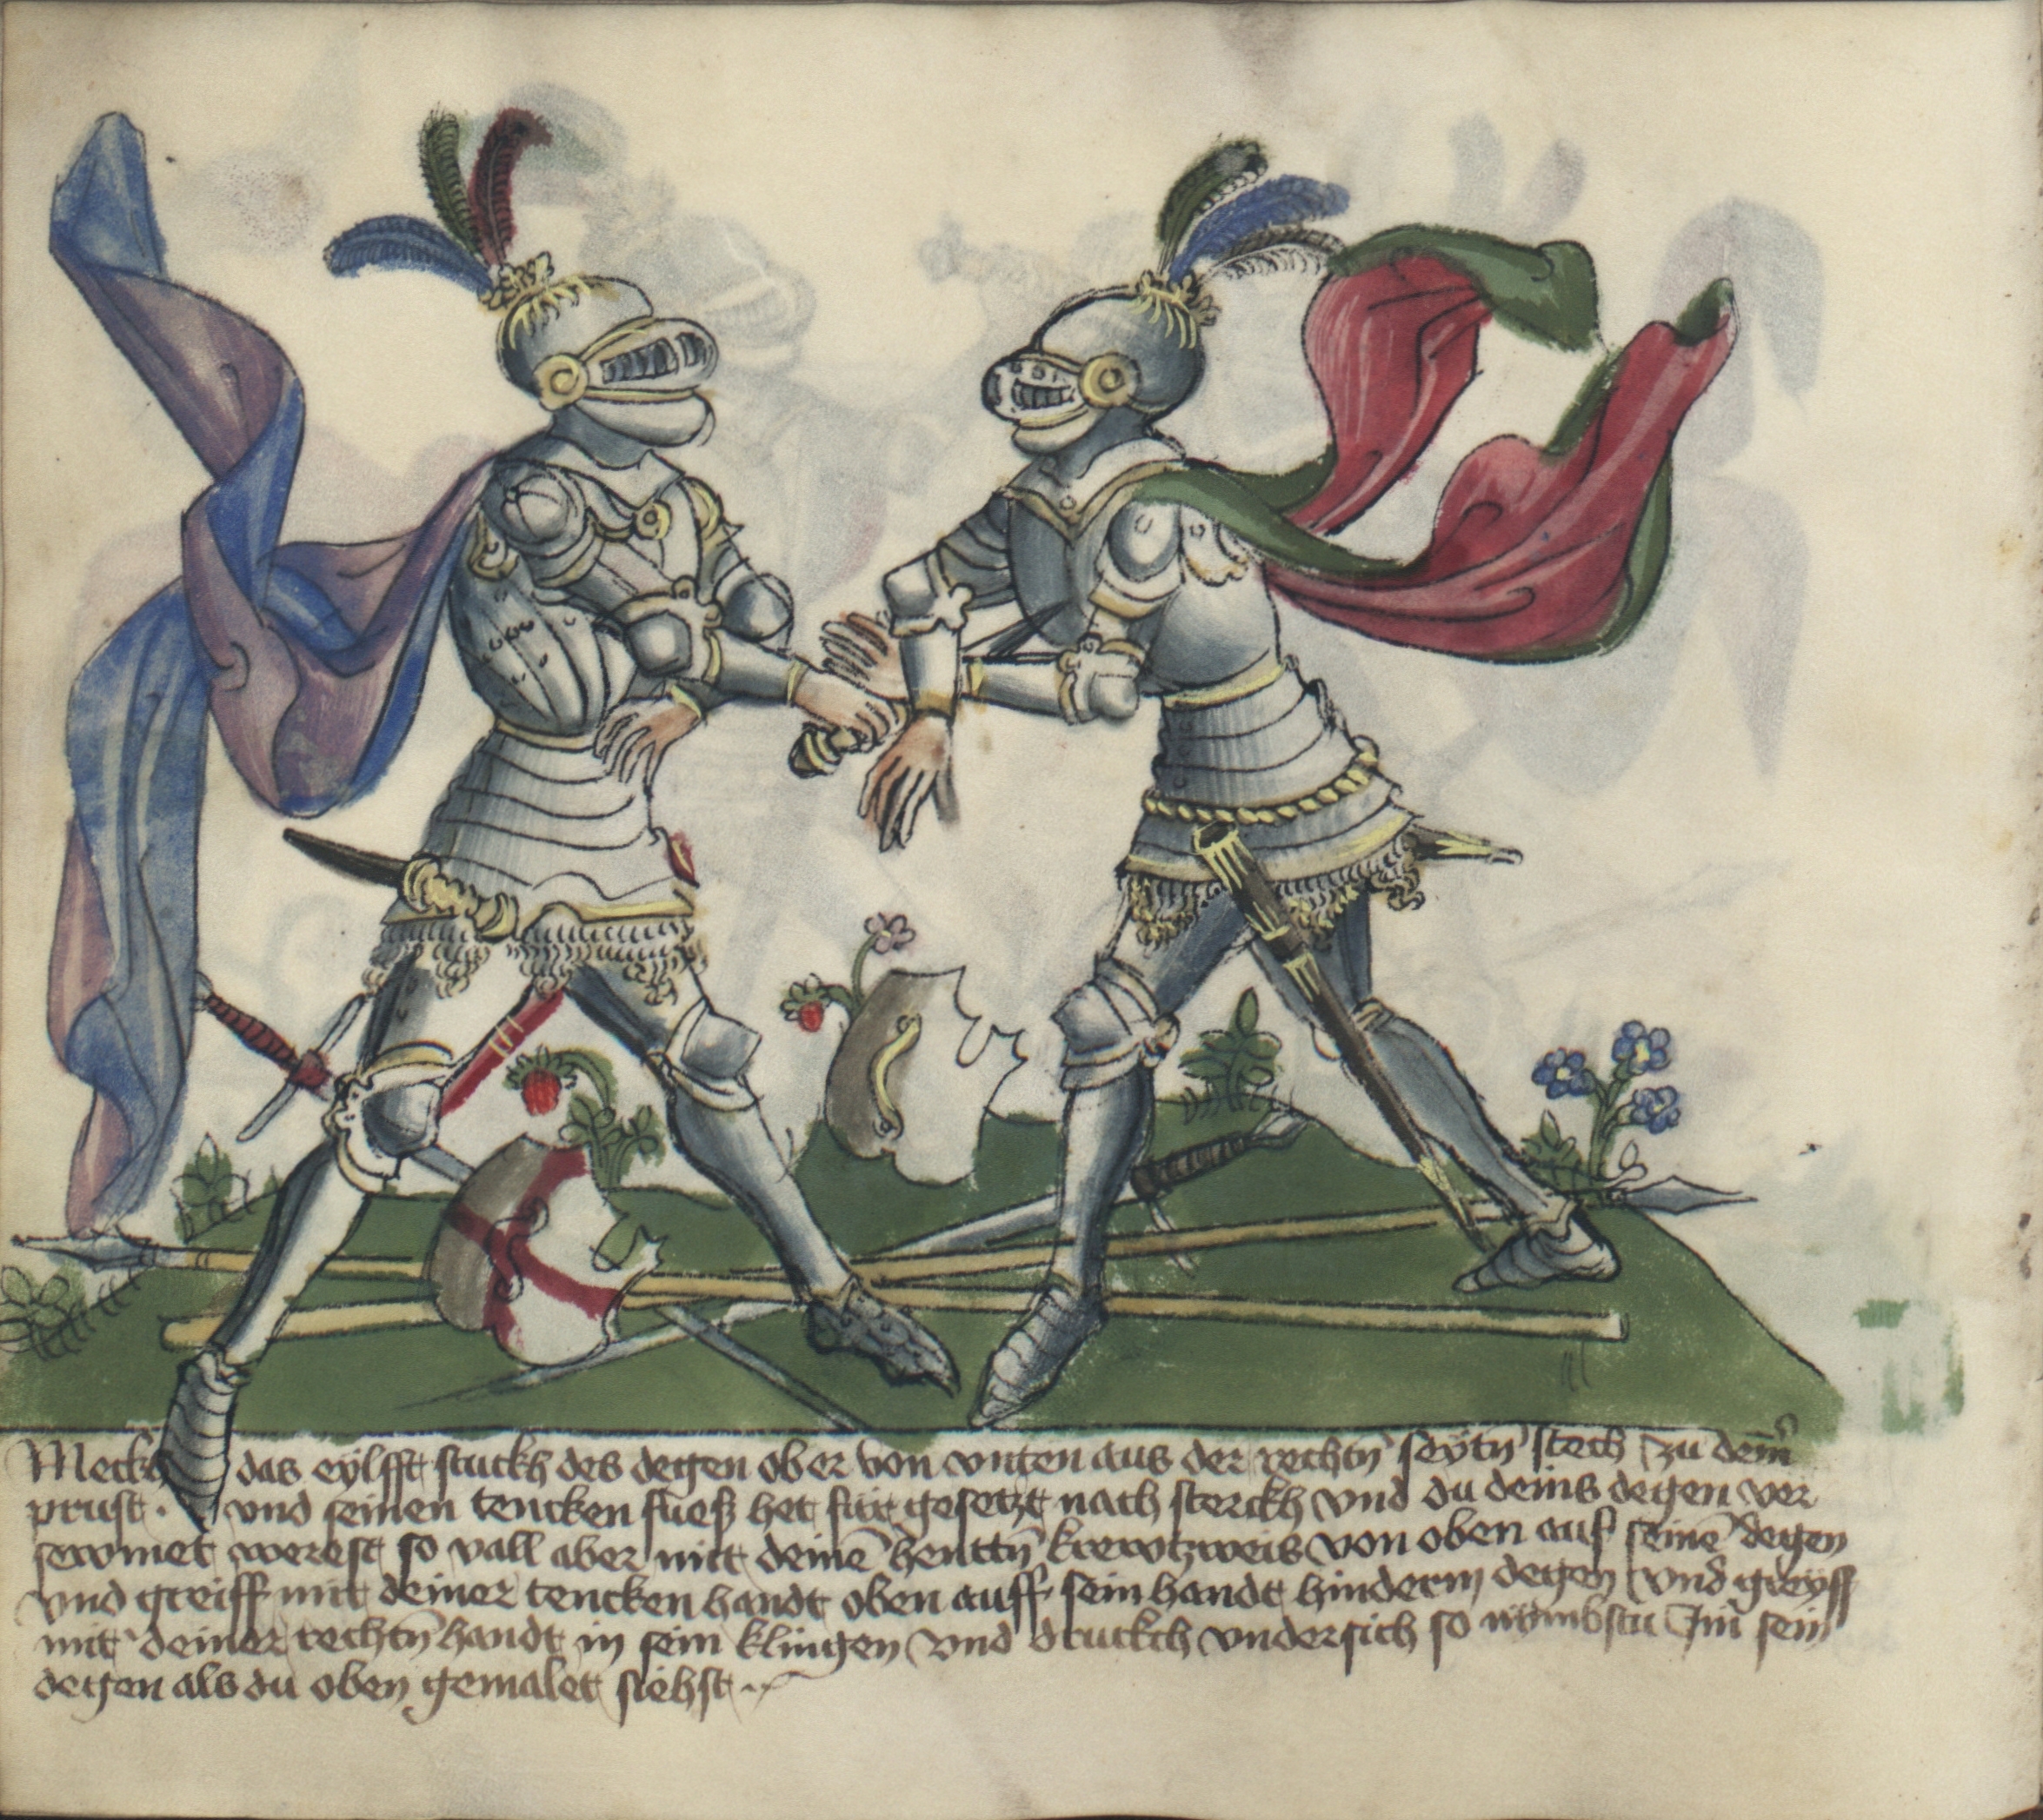 Merckh das eylfft stuckh des degen ob er von vnten aus der rechtn̄ seytn̄ stech zu dein̄
prust · vnd seinen tencken fueß het für gesetzt nach sterckh vnd du deins degen ver
sewmet werest so vall aber mit deinē henttn̄ krewtzweis von oben auf seinē degen
vnd greiff mit deiner tencken handt oben auff sein handt hinderm degen vnd greyff
mit deiner rechtn̄ handt in sein klingen vnd druckch vndersich so nÿmbstu Im̄ sein
degen als du oben gemalet siehst ·~